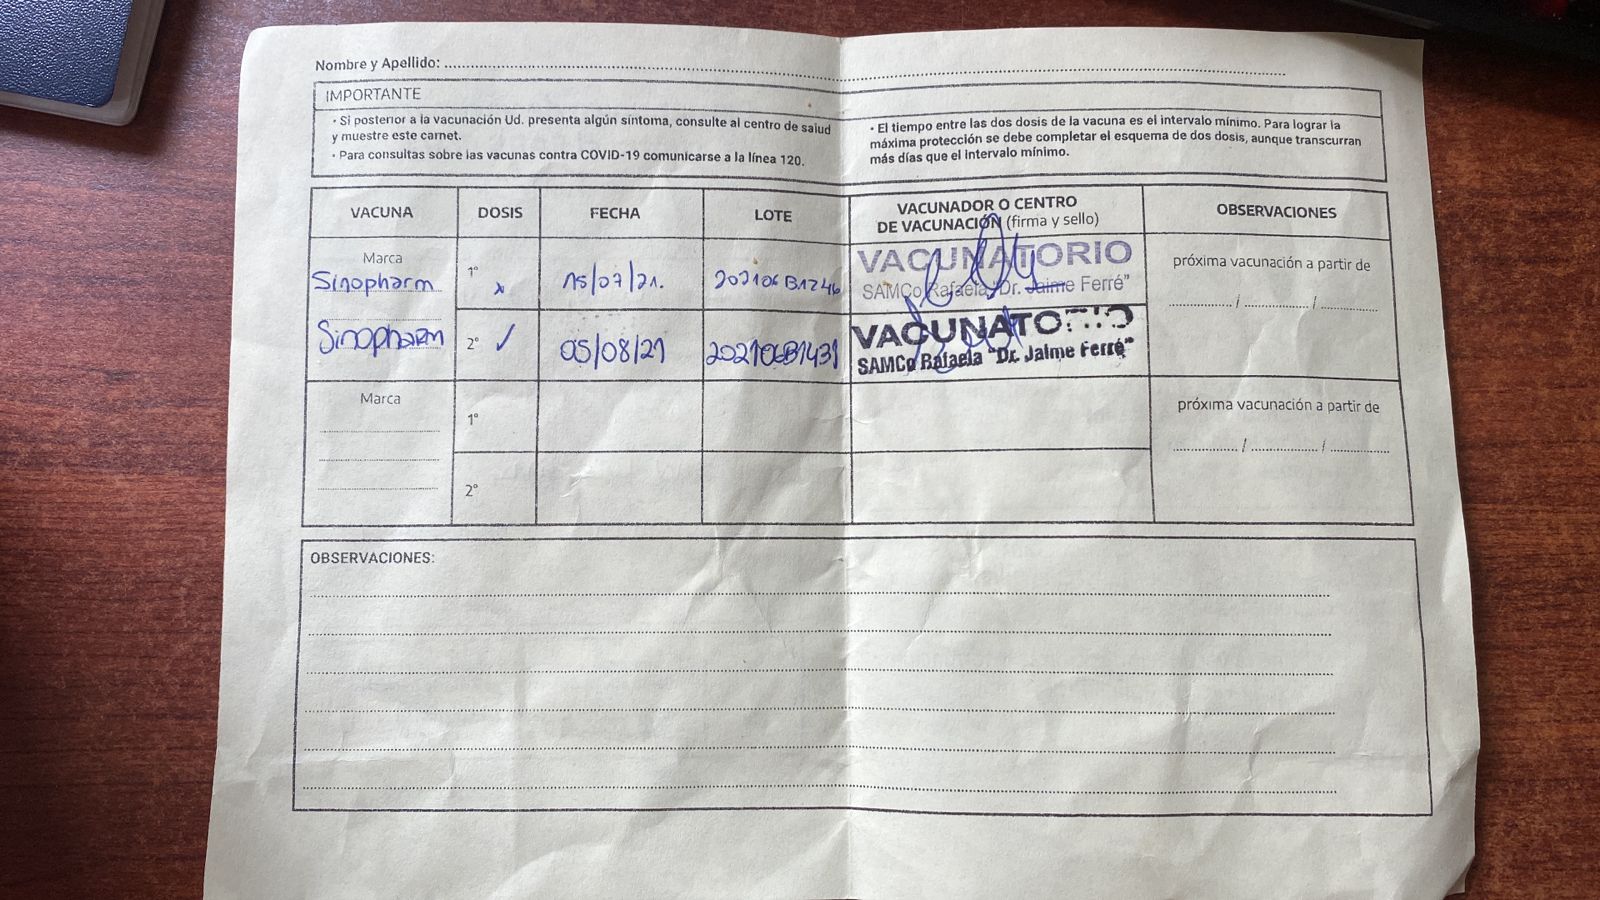 Nombre y Apellido:
IMPORTANTE
• Si posterior a la vacunación Ud. presenta algún síntoma, consulte al centro de salud
y muestre este carnet.
• Para consultas sobre las vacunas contra COVID-19 comunicarse a la línea 120.
• El tiempo entre las dos dosis de la vacuna es el intervalo mínimo. Para lograr la
máxima protección se debe completar el esquema de dos dosis, aunque transcurran
más días que el intervalo mínimo.
VACUNA DOSIS FECHA LOTE VACUNADOR O CENTRO
DE VACUNACIÓN (firma y sello) OBSERVACIONES
Marca
Sinopharm 1° x 15/07/21. 202106B1246
VACUNATORIO
SAMCo Rafaela "Dr. Jaime Ferré"
próxima vacunación a partir de
/ /
Sinopharm 2° ✓ 05/08/21 202106B1431
VACUNATORIO
SAMCo Rafaela "Dr. Jaime Ferré"
Marca
1°
2°
próxima vacunación a partir de
/ /
OBSERVACIONES: